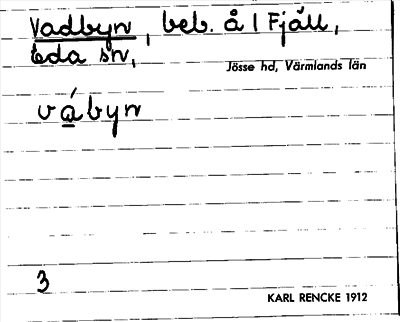 Vadbyn, beb. å 1 Fjäll,
Eda sn,
Jösse hd, Värmlands län
vábyn
3
KARL RENCKE 1912